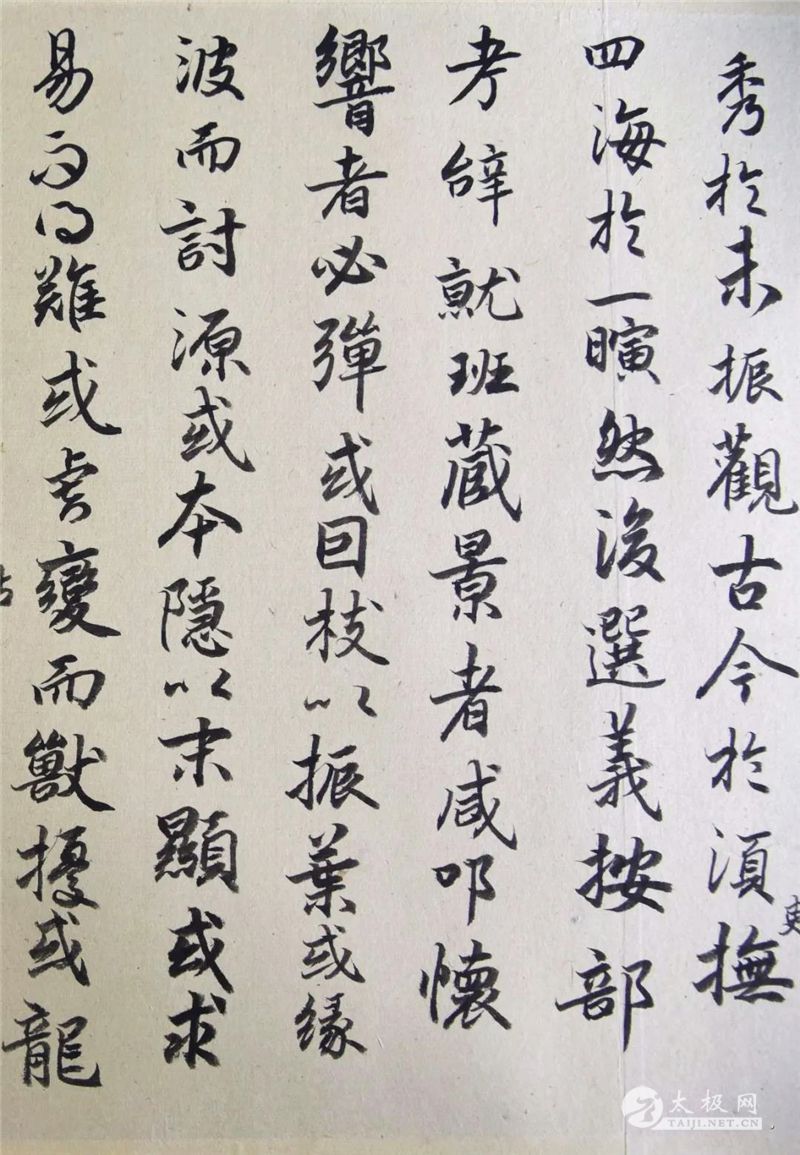 秀於未振觀古今於須臾撫
四海於一瞚然後選義按部
考辝就班藏景者咸叩懷
響者必彈或囙枝以振葉或緣
波而討源或本隱以末顯或求
易而得難或虎變而獸擾或龍
太极网
TAIJI.NET.CN